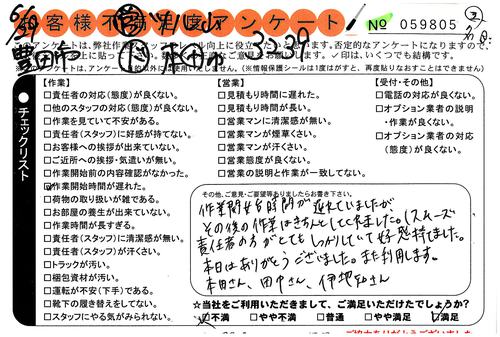 お客様不満足度アンケート
No 059805
このアンケートは、弊社作業スタッフのサービス向上に役立てたいと思います。否定的なアンケートになりますので、
(※情報保護シールは1度はがすと、再度貼りなおすことはできません)
チェックリスト
【作業】
□責任者の対応(態度)が良くない。
□他のスタッフの対応(態度)が良くない。
□作業を見ていて不安がある。
□責任者(スタッフ)に好感が持てない。
□お客様への挨拶が出来ていない。
□ご近所への挨拶・気遣いが無い。
□作業開始前の内容確認がなかった。
☑作業開始時間が遅れた。
□荷物の取り扱いが雑である。
□お部屋の養生が出来ていない。
□作業時間が長すぎる。
□責任者(スタッフ)に清潔感が無い。
□責任者(スタッフ)が汗くさい。
□トラックが汚い。
□梱包資材が汚い。
□運転が不安(下手)である。
□靴下の履き替えをしてない。
□スタッフにやる気がみられない。
【営業】
□見積もり時間に遅れた。
□見積もり時間が長い。
□営業マンに清潔感が無い。
□営業マンが煙草くさい。
□営業マンが汗くさい。
□営業態度が良くない。
□営業の説明と作業が一致してない。
【受付・その他】
□電話の対応が良くない。
□オプション業者の説明
・作業が良くない。
□オプション業者の対応
(態度)が良くない。
その他、ご意見・ご要望等ありましたらお書き下さい。
作業開始時間が遅れていましたが
その後の作業はきちんとしてくれました。(スムーズ)
責任者の方がとてもしっかりしていて好感持てました。
本日はありがとうございました。また利用します。
本田さん、田中さん、伊地知さん
☆当社をご利用いただきまして、ご満足いただけたでしょうか?
□不満 □やや不満 □普通 □やや満足 ☑満足